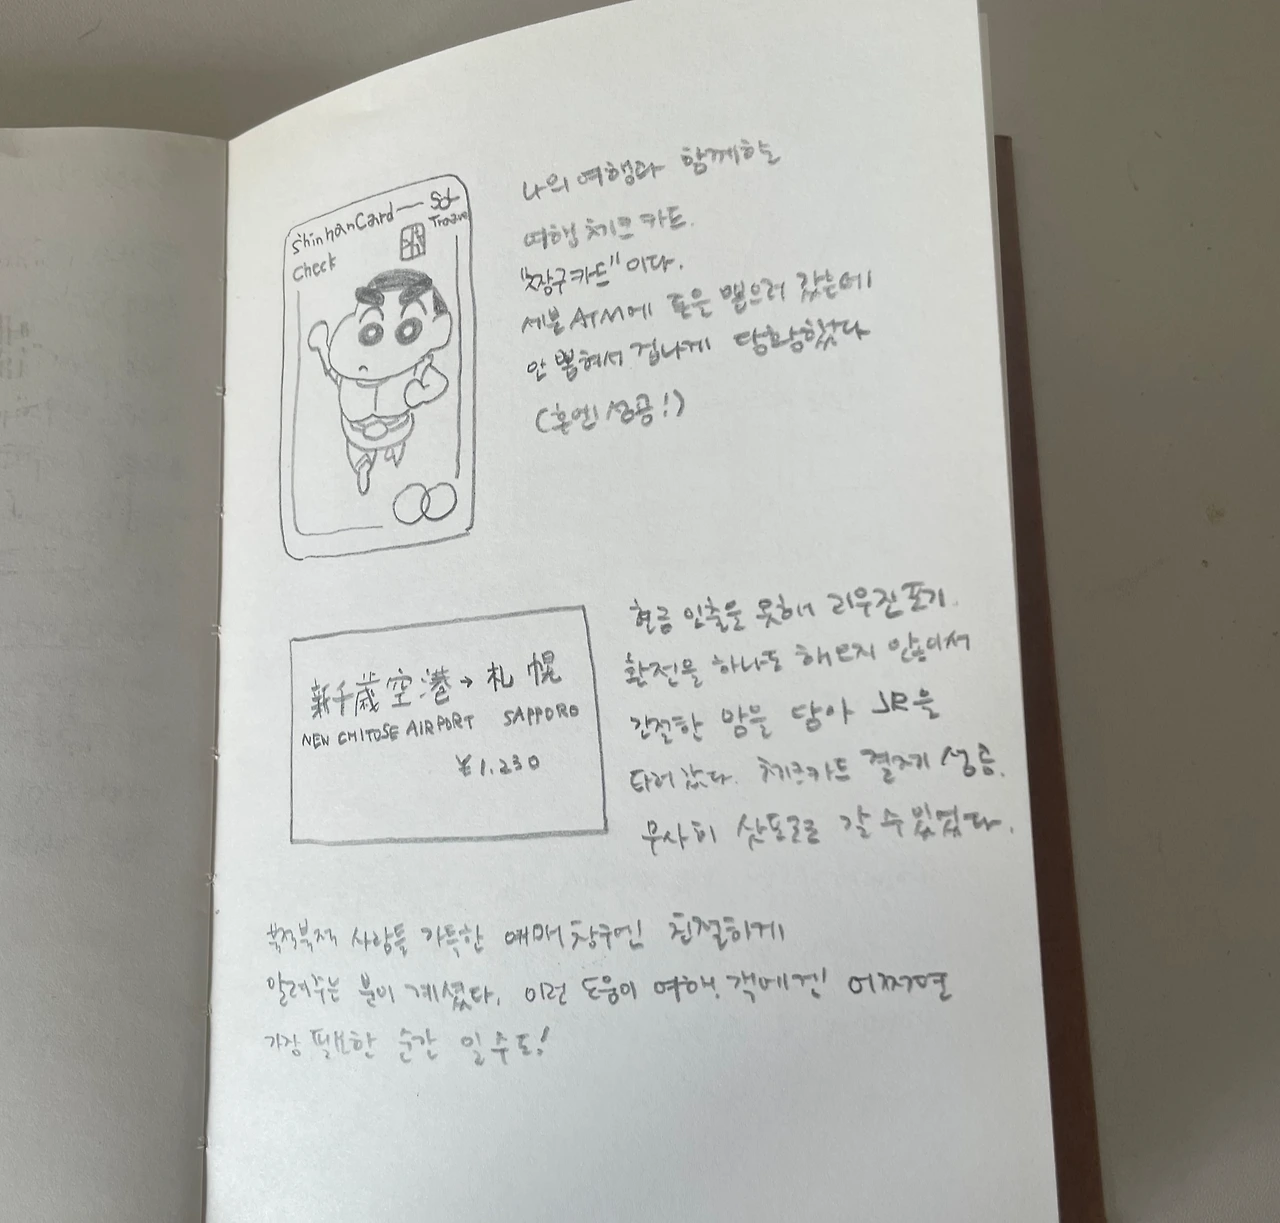 ShinhanCard
Check
SOL
Travel
나의 여행과 함께하는
여행 체크카드.
"짱구카드"이다.
세븐 ATM에 돈을 뽑으러 갔는데
안 뽑혀서 겁나게 당황했다
(혼엔 성공!)
현금 인출을 못해
환전을 하나도 해오지 않아서
간절한 맘을 담아 JR을
타러 갔다. 체크카드 결제기 성공.
무사히 삿포로로 갈 수 있었다.
新千歳空港→札幌
NEW CHITOSE AIRPORT SAPPORO
¥1,230
북적북적 사람들 가득한 예매 창구엔 친절하게
알려주는 분이 계셨다. 이런 도움이 여행객에겐 어쩌면
가장 필요한 순간 일수도!